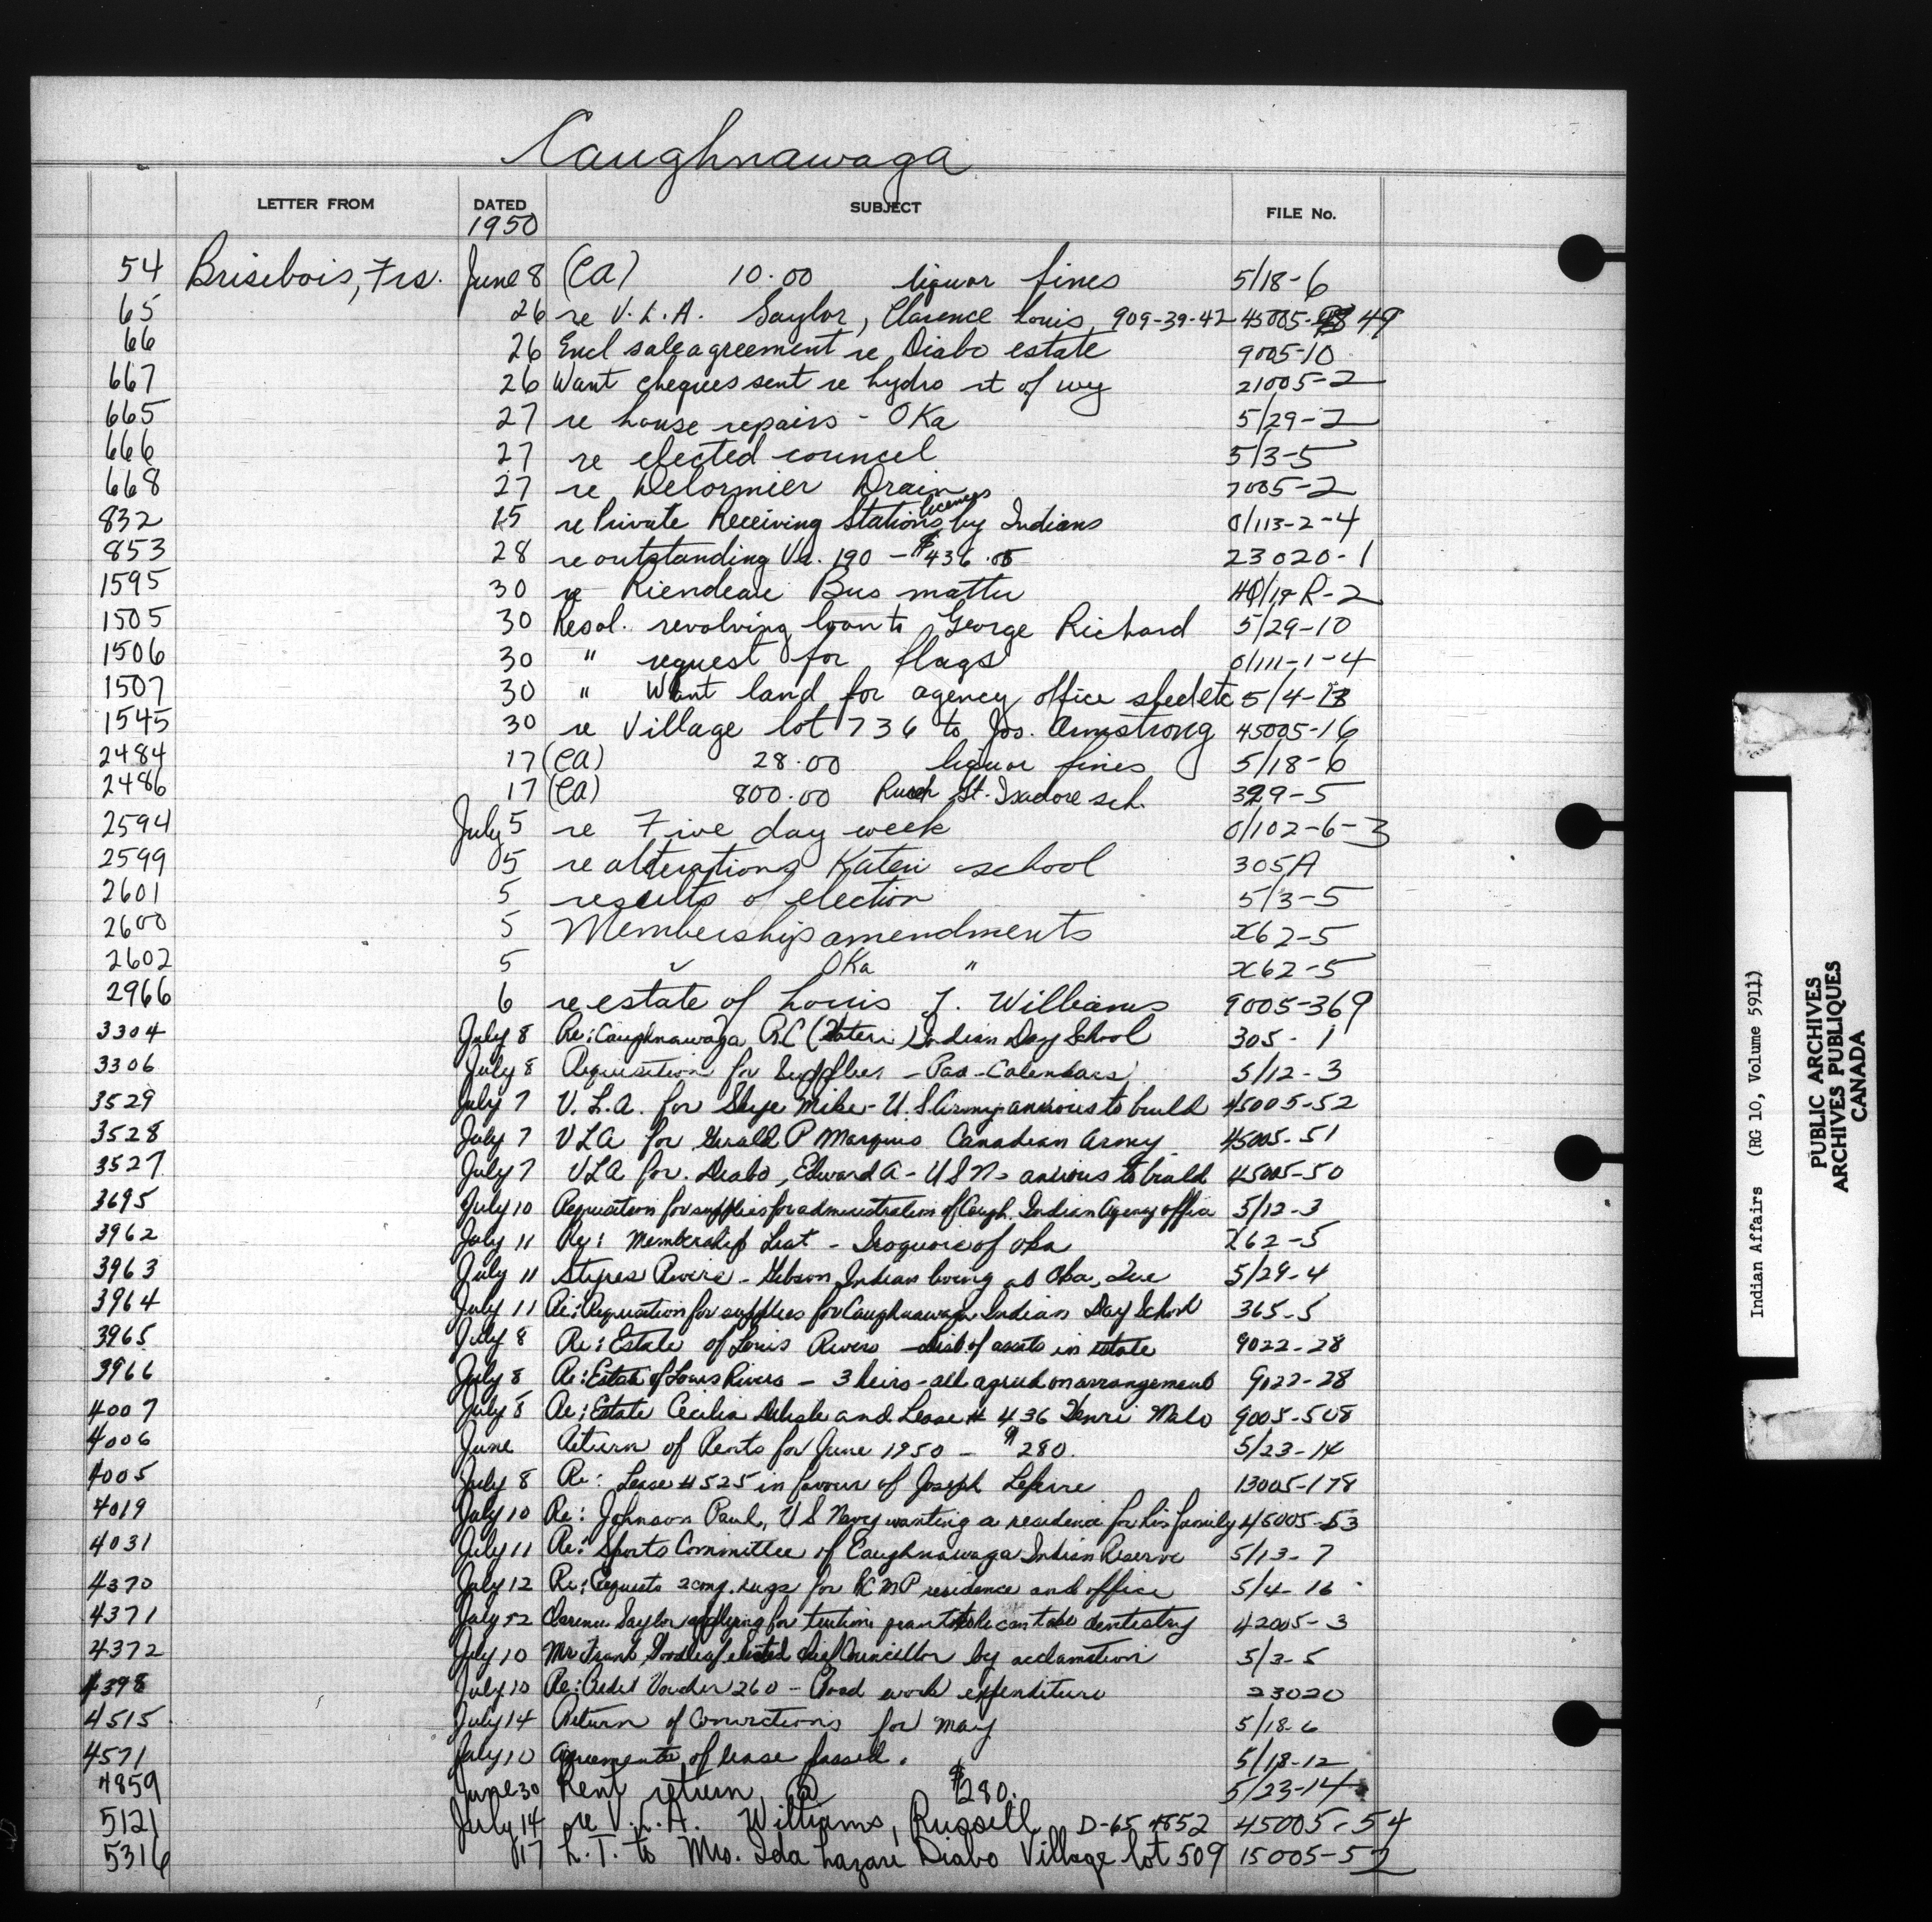 Caughnawaga
LETTER FROM DATED SUBJECT FILE No.
1950
54 Brisebois, Frs. June 8 (CA) 10.00 liquor fines 5/18-6
65 26 re V.L.A. Saylor, Clarence Louis, 909-39-42 45005-49
66 26 Encl sale agreement re Diabo estate 9005-10
667 26 Want cheques sent re hydro rt of wy 21005-2
665 27 re house repairs - OKa 5/29-2
666 27 re elected council 5/3-5
668 27 re Delormier Drain 7005-2
832 15 re Private Receiving Stations licences by Indians 0/113-2-4
853 28 re outstanding Vo. 190 - $436.05 23020-1
1595 30 re Riendeau Bus matter R-2
1505 30 Resol. revolving loan to George Richard 5/29-10
1506 30 " request for flags 0/111-1-4
1507 30 " Want land for agency office shed etc 5/4-13
1545 30 re Village lot 736 to Jos. Armstrong 45005-16
2484 17 (CA) 28.00 liquor fines 5/18-6
2486 17 (CA) 800.00 St. Isadore sch. 329-5
2594 July 5 re Five day week 0/102-6-3
2599 5 re alterations Kateri school 305A
2601 5 results of election 5/3-5
2600 5 Membership amendments x62-5
2602 5 " OKa " x62-5
2966 6 re estate of Louis J. Williams 9005-369
3304 July 8 Re: Caughnawaga RC (Kateri) Indian Day School 305-1
3306 July 8 Requisition for Supplies - Pad-Calendars 5/12-3
3529 July 7 V.L.A. for Skye Mike - U.S Army anxious to build 45005-52
3528 July 7 VLA for Gerald P Marquis Canadian Army 45005-51
3527 July 7 VLA for. Diabo, Edward A - USN - anxious to build 45005-50
3695 July 10 Requisition for supplies for administration of Caugh. Indian Agency office 5/12-3
3962 July 11 Re: Membership List - Iroquois of Oka x62-5
3963 July 11 - Gibson Indian living at Oka, Que 5/29-4
3964 July 11 Re: Requisition for supplies for Caughnawaga Indian Day School 365-5
3965 July 8 Re: Estate of Louis Rivers - List of assets in estate 9022-28
3966 July 8 Re: Estate of Louis Rivers - 3 heirs - all agreed on arrangement 9022-28
4007 July 8 Re: Estate Cecilia Delisle and Lease # 436 Henri Melo 9005-508
4006 June Return of Rents for June 1950 - $280. 5/23-14
4005 July 8 Re: Lease #525 in favour of Joseph Lefevre 13005-178
4019 July 10 Re: Johnson Paul, US Navy wanting a residence for his family 45005-53
4031 July 11 Re: Sports Committee of Caughnawaga Indian Reserve 5/13-7
4370 July 12 Re: Requests 2 cong. rugs for RCMP residence and office 5/4-16
4371 July 12 Clarence Saylor applying for tuition grant so he can take dentistry 42005-3
4372 July 10 Mr Frank Goodleaf elected chief Councillor by acclamation 5/3-5
4398 July 10 Re: Credit Voucher 260 - Road work expenditure 23020
4515 July 14 Return of Convictions for May 5/18-6
4571 July 10 Agreements of lease passed. 5/18-12
4859 June 30 Rent return @ $280. 5/23-14
5121 July 14 re V.L.A. Williams, Russell D-65 4852 45005-54
5316 17 L.T. to Mrs. Ida Lazare Diabo Village lot 509 15005-52
Indian Affairs (RG 10, Volume 5911)
PUBLIC ARCHIVES
ARCHIVES PUBLIQUES
CANADA